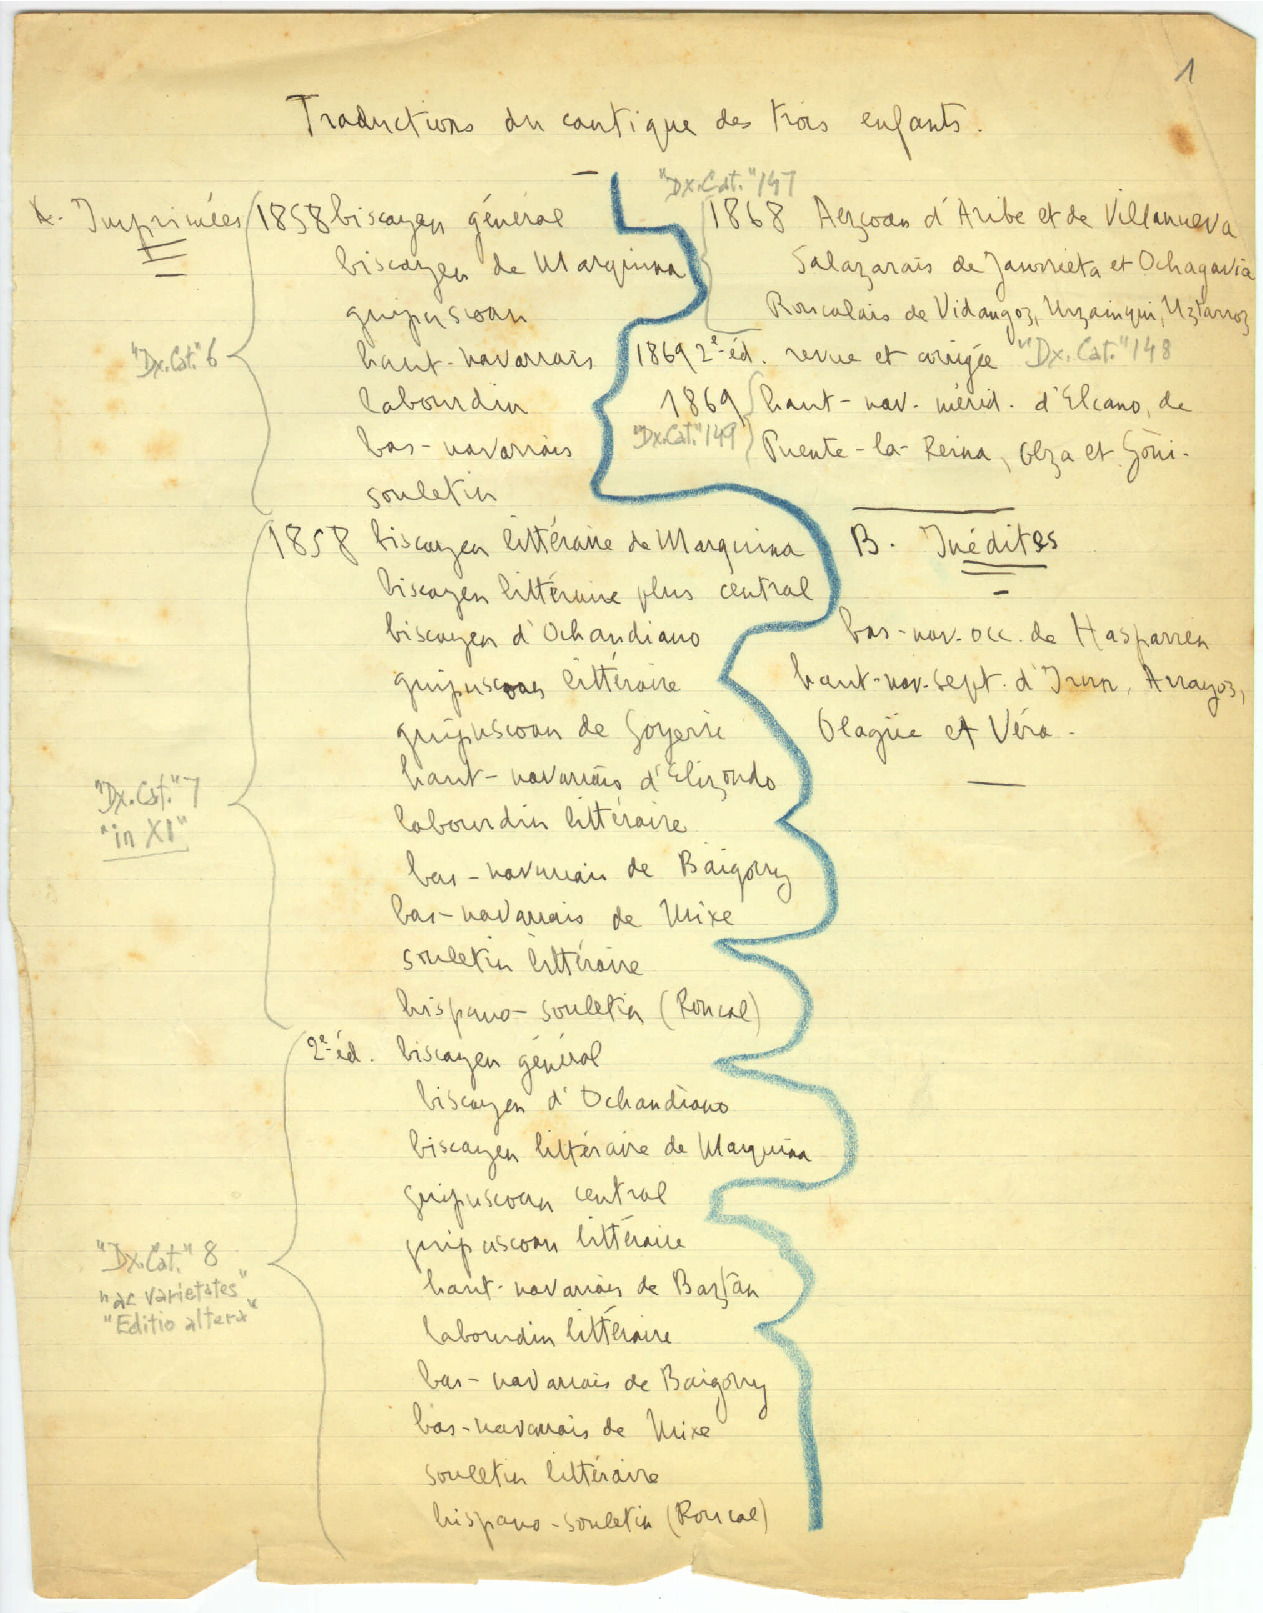 1
Traductions du cantique des trois enfants.
A. Imprimées
1858 biscayen général
biscayen de Marquina
guipuscoan
"Dx.Cat." 6
haut-navarrais
labourdin
bas-navarrais
souletin
1858 biscayen littéraire de Marquina
biscayen littéraire plus central
biscayen d'Ochandiano
guipuscoan littéraire
guipuscoan de Goyerri
haut-navarrais d'Elizondo
"Dx.Cat." 7
"in XI"
labourdin littéraire
bas-navarrais de Baigorry
bas-navarrais de Mixe
souletin littéraire
hispano-souletin (Roncal)
2e éd. biscayen général
biscayen d'Ochandiano
biscayen littéraire de Marquina
guipuscoan central
guipuscoan littéraire
"Dx.Cat." 8
"ac varietates"
"Editio altera"
haut-navarrais de Baztan
labourdin littéraire
bas-navarrais de Baigorry
bas-navarrais de Mixe
souletin littéraire
hispano-souletin (Roncal)
"Dx.Cat." 147
1868 Aezcoan d'Aribe et de Villanueva
Salazarais de Jaurrieta et Ochagavia
Roncalais de Vidangoz, Urzainqui, Uztarroz
1869 2e éd. revue et corrigée "Dx.Cat." 148
1869 haut-nav. mérid. d'Elcano, de
"Dx.Cat." 149
Puente-la-Reina, Olza et Goñi.
B. Inédites
bas-nav. occ. de Hasparren
haut-nav. sept. d'Irun, Arrayoz,
Olagüe et Véra.